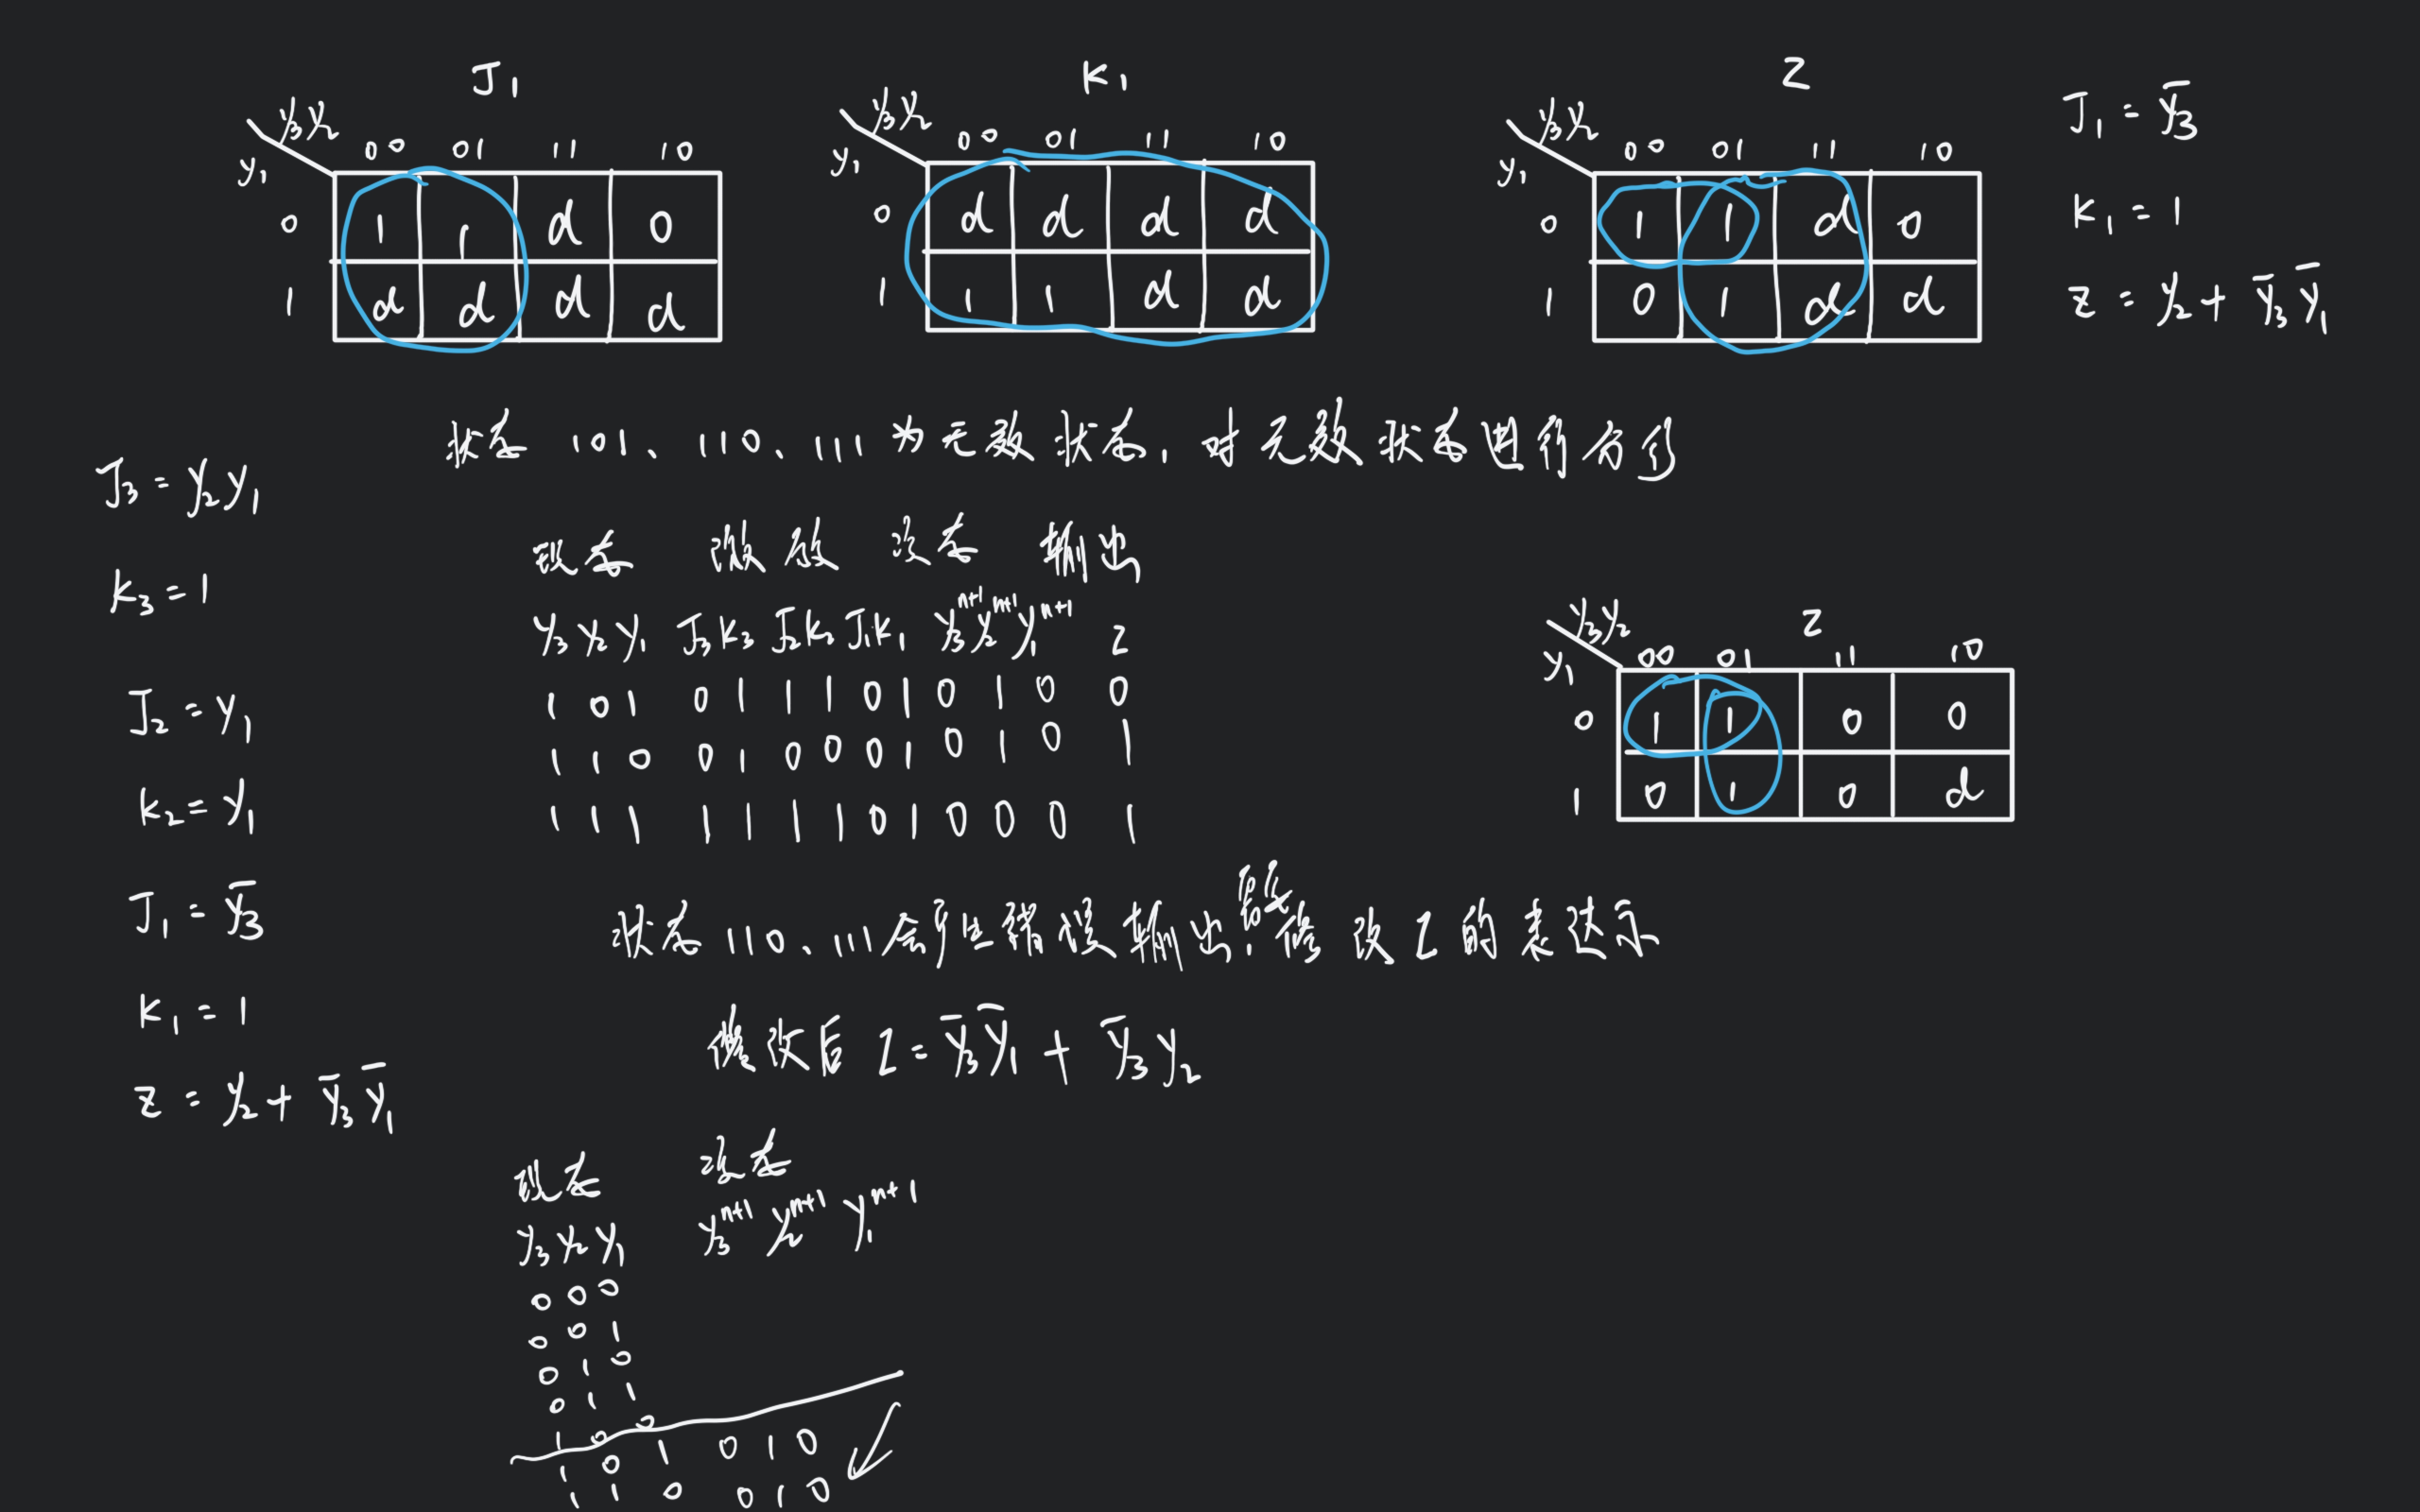 J₁
y₃y₂
y₁
00 01 11 10
0 1 1 d 0
1 d d d d
K₁
y₃y₂
y₁
00 01 11 10
0 d d d d
1 1 1 d d
Z
y₃y₂
y₁
00 01 11 10
0 1 1 d 0
1 0 1 d d
J₁ = y̅₃
K₁ = 1
Z = y₂ + y̅₃ y̅₁
状态 101、110、111 为无效状态，对无效状态进行分析
J₃ = y₂y₁
K₃ = 1
J₂ = y₁
K₂ = y₁
J₁ = y̅₃
K₁ = 1
Z = y₂ + y̅₃ y̅₁
现态 激励 次态 输出
y₃ y₂ y₁ J₃K₃ J₂K₂ J₁K₁ y₃ⁿ⁺¹ y₂ⁿ⁺¹ y₁ⁿ⁺¹ Z
1 0 1 0 1 1 1 0 1 0 1 0 0
1 1 0 0 1 0 0 0 1 0 1 0 1
1 1 1 1 1 1 1 0 1 0 0 0 1
y₃y₂
y₁
Z
00 01 11 10
0 1 1 0 0
1 0 1 0 d
状态 110、111 会产生错误输出，修改 Z 的表达示
修改后 Z = y̅₃ y̅₁ + y̅₃ y₂
现态 次态
y₃ y₂ y₁ y₃ⁿ⁺¹ y₂ⁿ⁺¹ y₁ⁿ⁺¹
0 0 0
0 0 1
0 1 0
0 1 1
1 0 0
1 0 1 0 1 0
1 1 0 0 1 0